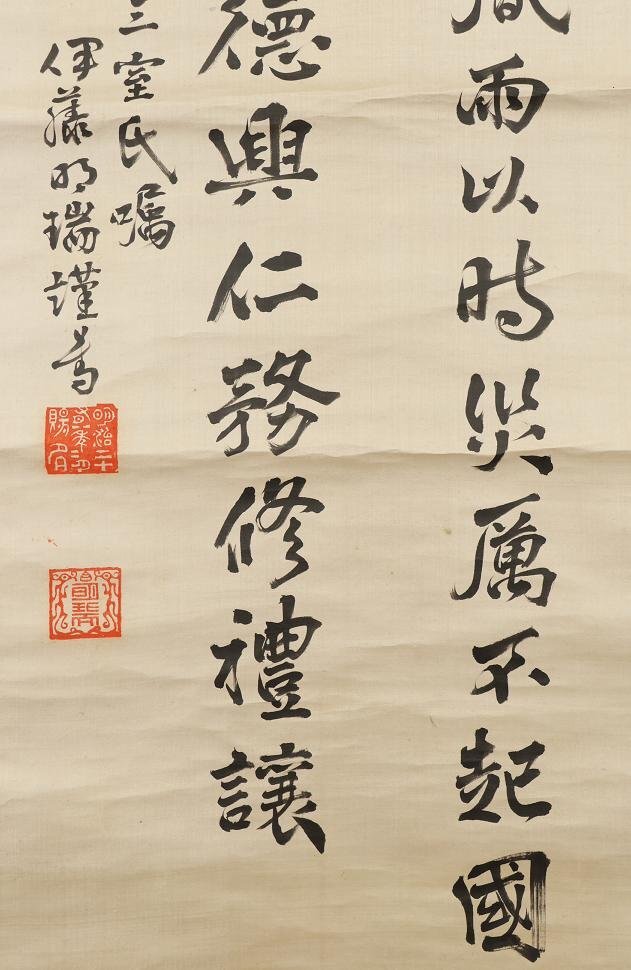 風雨以時災厲不起國
德興仁務修禮讓
三室氏嘱
伊藤明瑞謹書